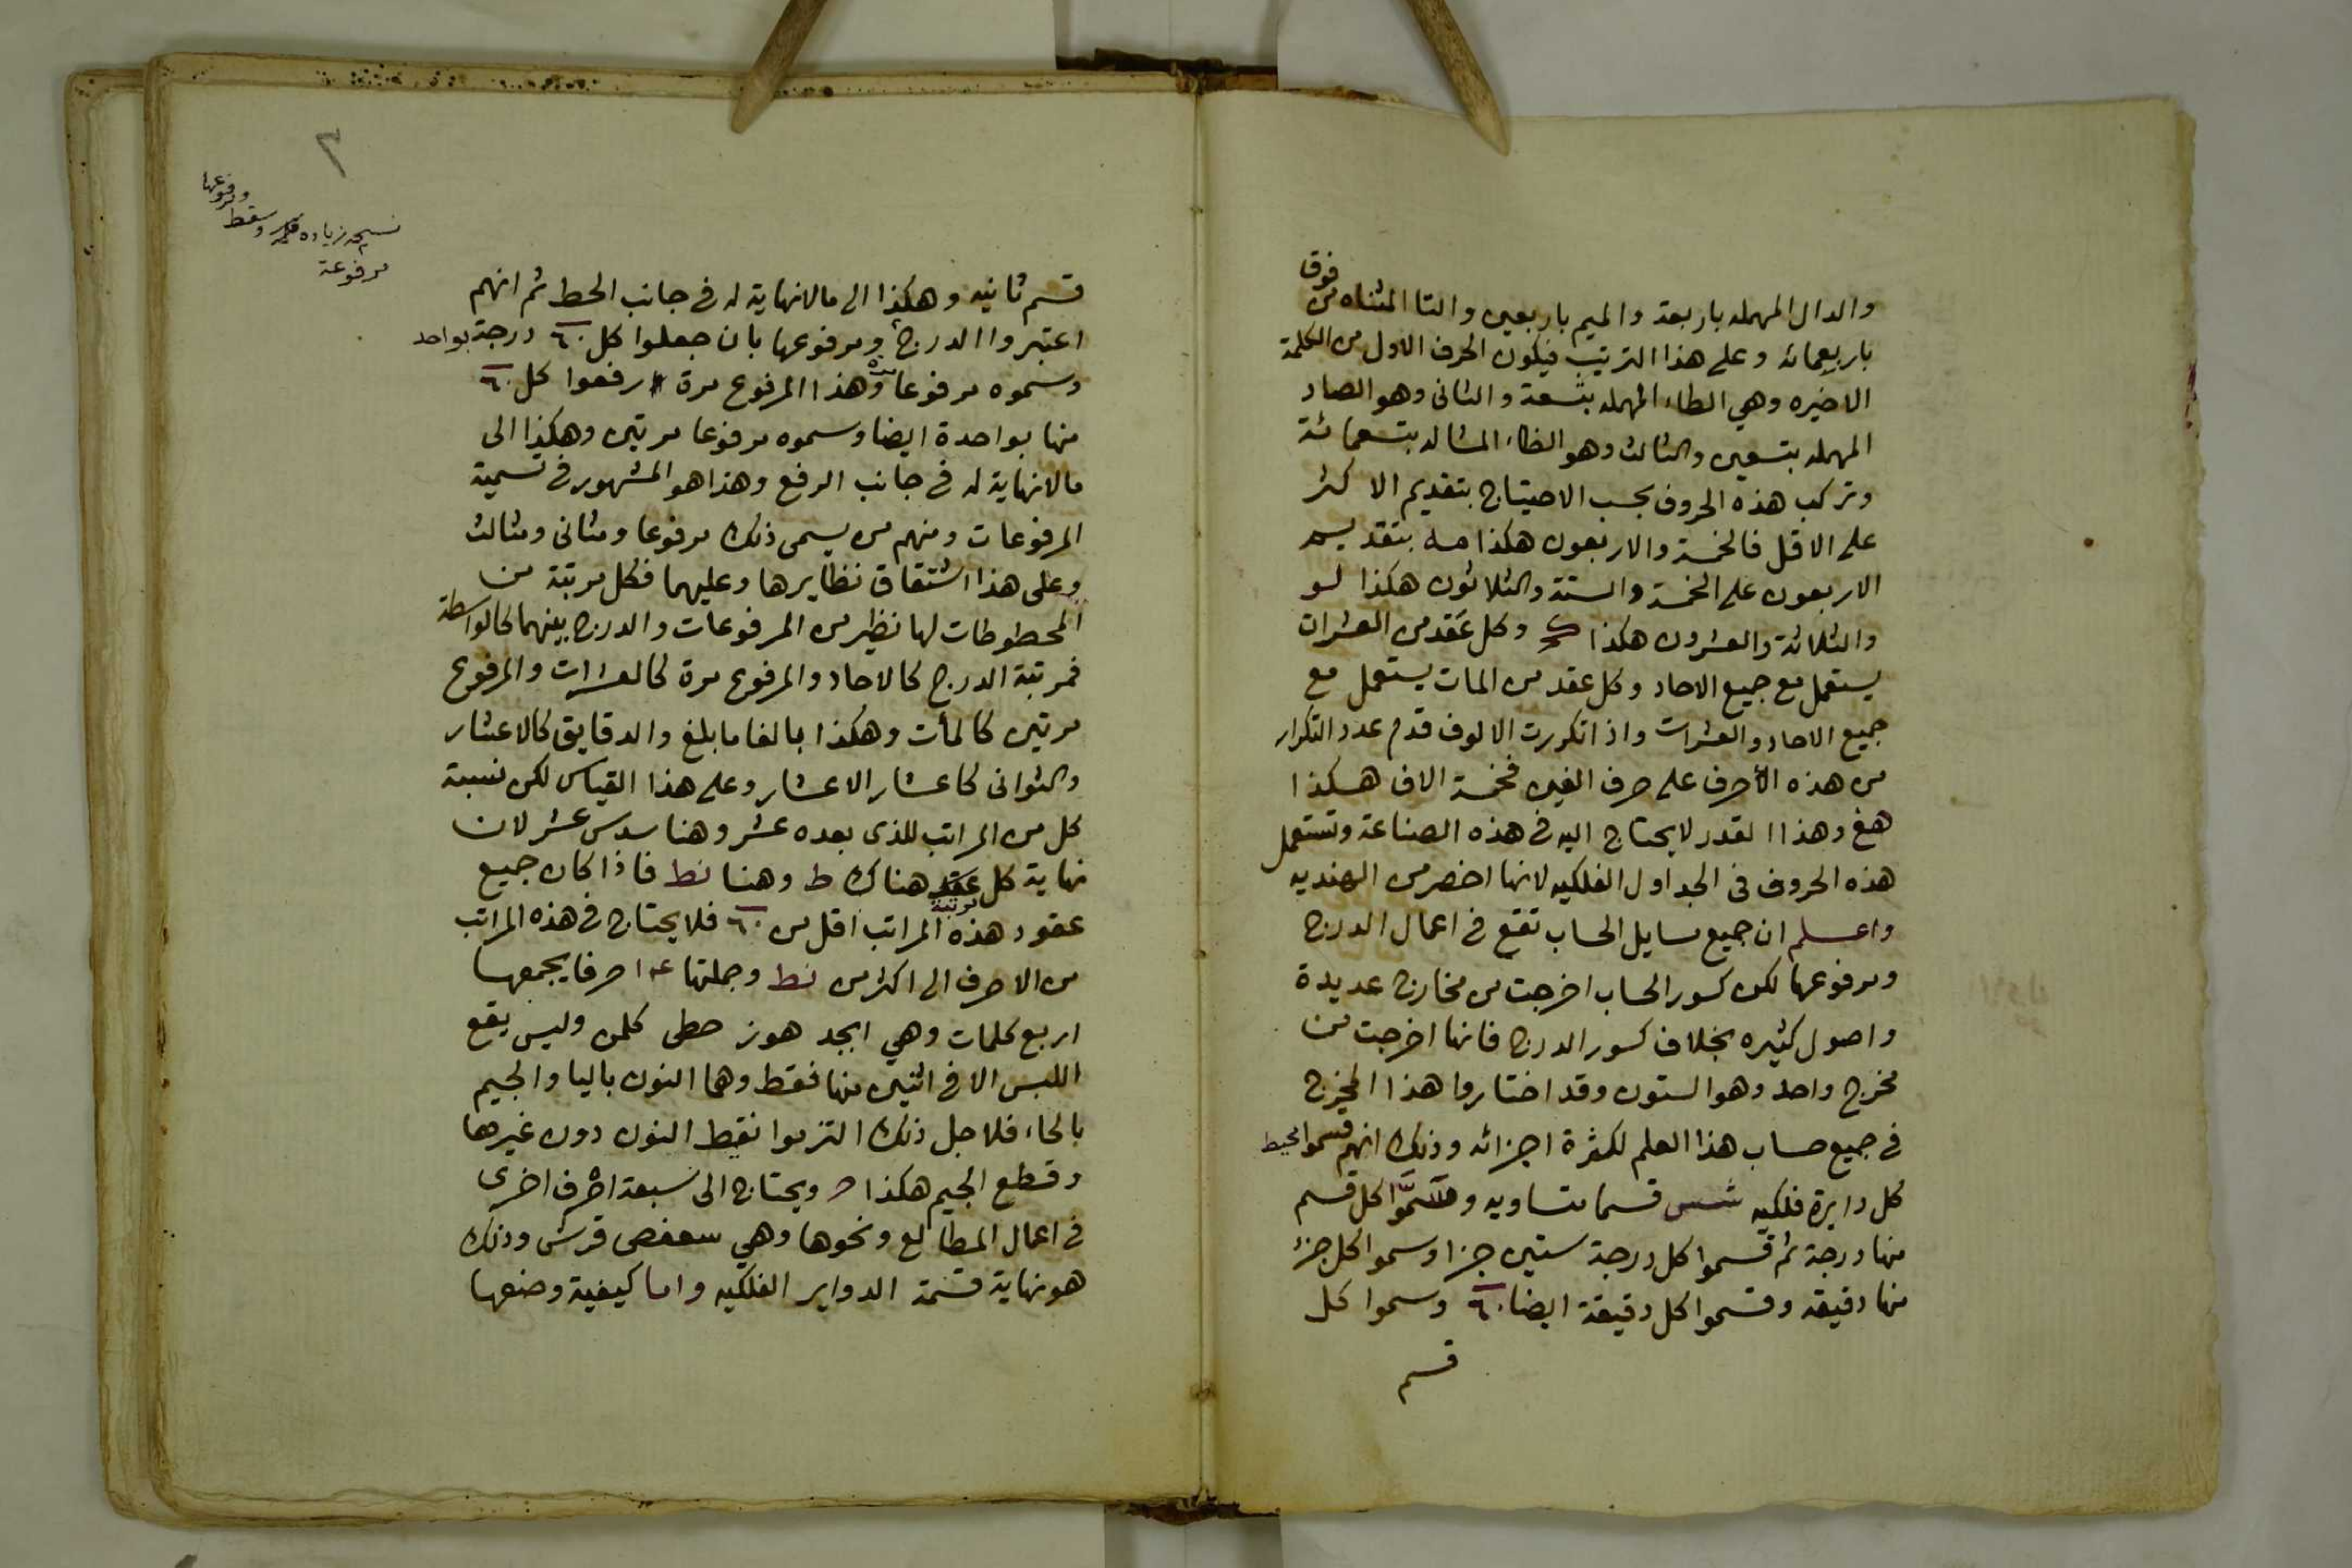 والدال المهمله باربعة والميم باربعين والتا المثناه من فوق
باربعمائه وعلى هذا الترتيب فيكون الحرف الاول من الكلمة
الاخيره وهي الطاء المهمله بتسعة والثانى وهو الصاد
المهمله بتسعين والثالث وهو الظاء المشاله بتسعمائة
وتركب هذه الحروف بحسب الاحتياج بتقديم الاكثر
على الاقل فالخمسة والاربعون هكذا مه بتقديم
الاربعون على الخمسة والستة والثلاثون هكذا لو
والثلاثة والعشرون هكذا كح وكل عقد من العشرات
يستعمل مع جميع الاحاد وكل عقد من المات يستعمل مع
جميع الاحاد والعشرات واذا تكررت الالوف قدم عدد التكرار
من هذه الأحرف على حرف الغين فخمسة الاف هكذا
هغ وهذا القدر لا يحتاج اليه فى هذه الصناعة وتستعمل
هذه الحروف فى الجداول الفلكيه لانها اخصر من الهنديه
واعلم ان جميع مسايل الحساب تقع فى اعمال الدرج
ومرفوعها لكن كسور الحساب اخرجت من مخارج عديدة
واصول كثيره بخلاف كسور الدرج فانها اخرجت من
مخرج واحد وهو الستون وقد اختاروا هذا المخرج
فى جميع حساب هذا العلم لكثرة اجزائه وذلك انهم قسموا محيط
كل دايرة فلكيه شس قسما متساويه وسموا كل قسم
منها درجة ثم قسموا كل درجة ستين جزا وسموا كل جزء
منها دقيقه وقسموا كل دقيقة ايضا ٦٠ وسموا كل
قسم
٣
نسخه زياده وسقط ومرفوعها
مرفوعة
قسم ثانيه وهكذا الى مالانهاية له فى جانب الحط ثم انهم
اعتبروا الدرج ومرفوعها بان جعلوا كل ٦٠ درجة بواحد
وسموه مرفوعا وهذا المرفوع مرة رفعوا كل ٦٠
منها بواحدة ايضا وسموه مرفوعا مرتين وهكذا الى
مالانهاية له فى جانب الرفع وهذا هو المشهور فى تسمية
المرفوعات ومنهم من يسمى ذلك مرفوعا ومثانى ومثالث
وعلى هذا اشتقاق نظايرها وعليهما فكل مرتبة من
المحطوطات لها نظير من المرفوعات والدرج بينهما كالواسطة
فمرتبة الدرج كالاحاد والمرفوع مرة كالعشرات والمرفوع
مرتين كالمأت وهكذا بالغا ما بلغ والدقايق كالاعشار
والثوانى كاعشار الاعشار وعلى هذا القياس لكن نسبة
كل من المراتب للذى بعده عشر وهنا سدس عشر لان
نهاية كل مرتبة هناك ط وهنا نط فاذا كان جميع
عقود هذه المراتب اقل من ٦٠ فلا يحتاج فى هذه المراتب
من الاحرف الى اكثر من نط وجملتها ١٤ حرفا يجمعها
اربع كلمات وهي ابجد هوز حطى كلمن وليس يقع
اللبس الا فى اثنين منها فقط وهما النون باليا والجيم
بالحاء فلاجل ذلك التزموا نقط النون دون غيرها
وقطع الجيم هكذا حـ ويحتاج الى سبعة احرف اخرى
فى اعمال المطالع ونحوها وهي سعفص قرش وذلك
هو نهاية قسمة الدواير الفلكيه واما كيفية وضعها